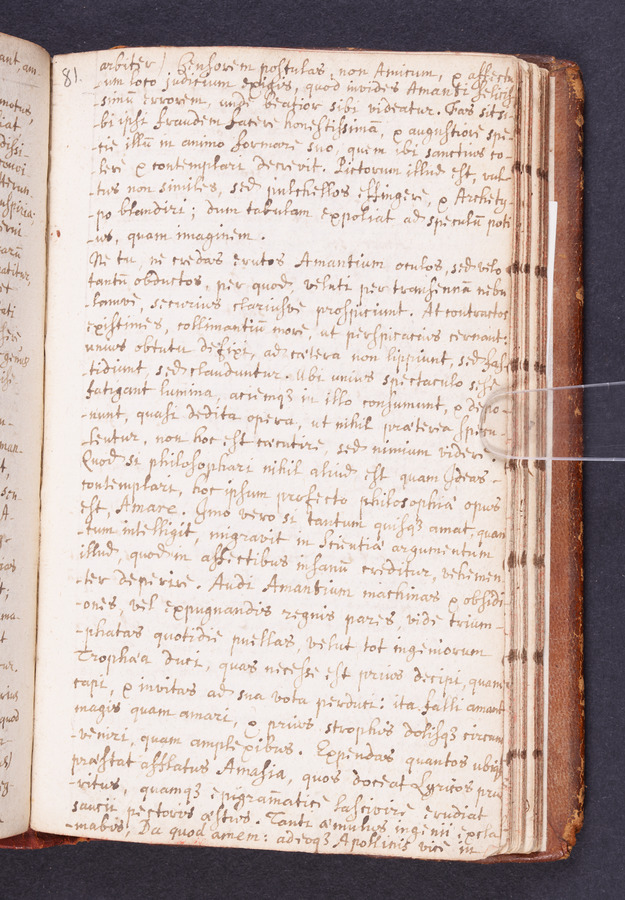 81.
arbiter) Censorem postulas, non Amicum, & affectu-
-um loco judicium exigis, quod invides Amanti felicis-
simũ errorem, unde beatior sibi videatur. Fas sit si-
-bi ipsi fraudem facere honestissimã, & augustiore spe-
-cie illũ in animo formare suo, quem ibi sanctius co-
-lere & contemplari decrevit. Pictorum illud est, vul-
-tus non similes, sed pulchellos effingere, & Archety-
-po blandiri; dum tabulam expoliat ad speculũ poti
-us, quam imaginem.
Ne tu, ne credas erutos Amantium oculos, sed velo
tantũ obductos, per quod, veluti per transennam nebu
-lamve, securius clariusve prospiciunt. At contractos
existimes, collimantium more, ut perspicacius cernant:
unius obtutu defixi, ad cætera non lippiunt, sed fas-
-tidiunt, sed clauduntur. Ubi unius spectaculo sese
fatigant lumina, aciemqʒ in illo consumunt, & depo-
-nunt, quasi dedita opera, ut nihil præterea specu-
-lentur, non hoc est cæcutire, sed nimium videre.
Quod si philosophari nihil aliud est quam Ideas
contemplari, hoc ipsum profecto philosophiæ opus
est, Amare. Imo vero si tantum quisqʒ amat, quan
-tum intelligit, migravit in scientiæ argumentum
illud, quod in affectibus insanũ creditur, vehemen-
-ter deperire. Audi Amantium machinas & obsidi-
-ones, vel expugnandis regnis pares, vide trium-
-phatas quotidie puellas, velut tot ingeniorum
Trophæa duci, quas necesse est prius decipi, quam
capi, & invitas ad sua vota perduci: ita falli amant
magis quam amari, & prius strophis dolisqʒ circum
-veniri, quam amplexibus. Expendas quantos ubiqʒ
præstat afflatus Amasia, quos doceat Lyricos
-ritus, quamqʒ epigram̃atice lascivire erudiat
saucii pectoris æstus. Tanti æmulus ingenii excla-
-mabis, Da quod amem: adeoqʒ Apollinis vice in